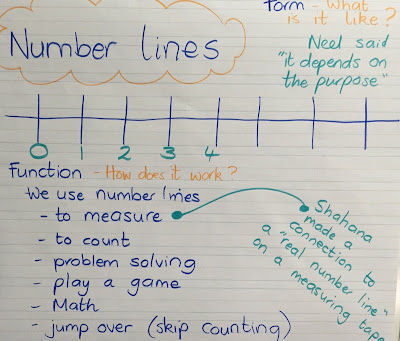 Form - What
is it like?
Number lines
Neel said
"it depends on
the purpose"
0 1 2 3 4
Function - How does it work?
We use number lines
- to measure
- to count
- problem solving
- play a game
- Math
- jump over (skip counting)
Shahana
made a
connection to
a "real number line"
on a measuring tape